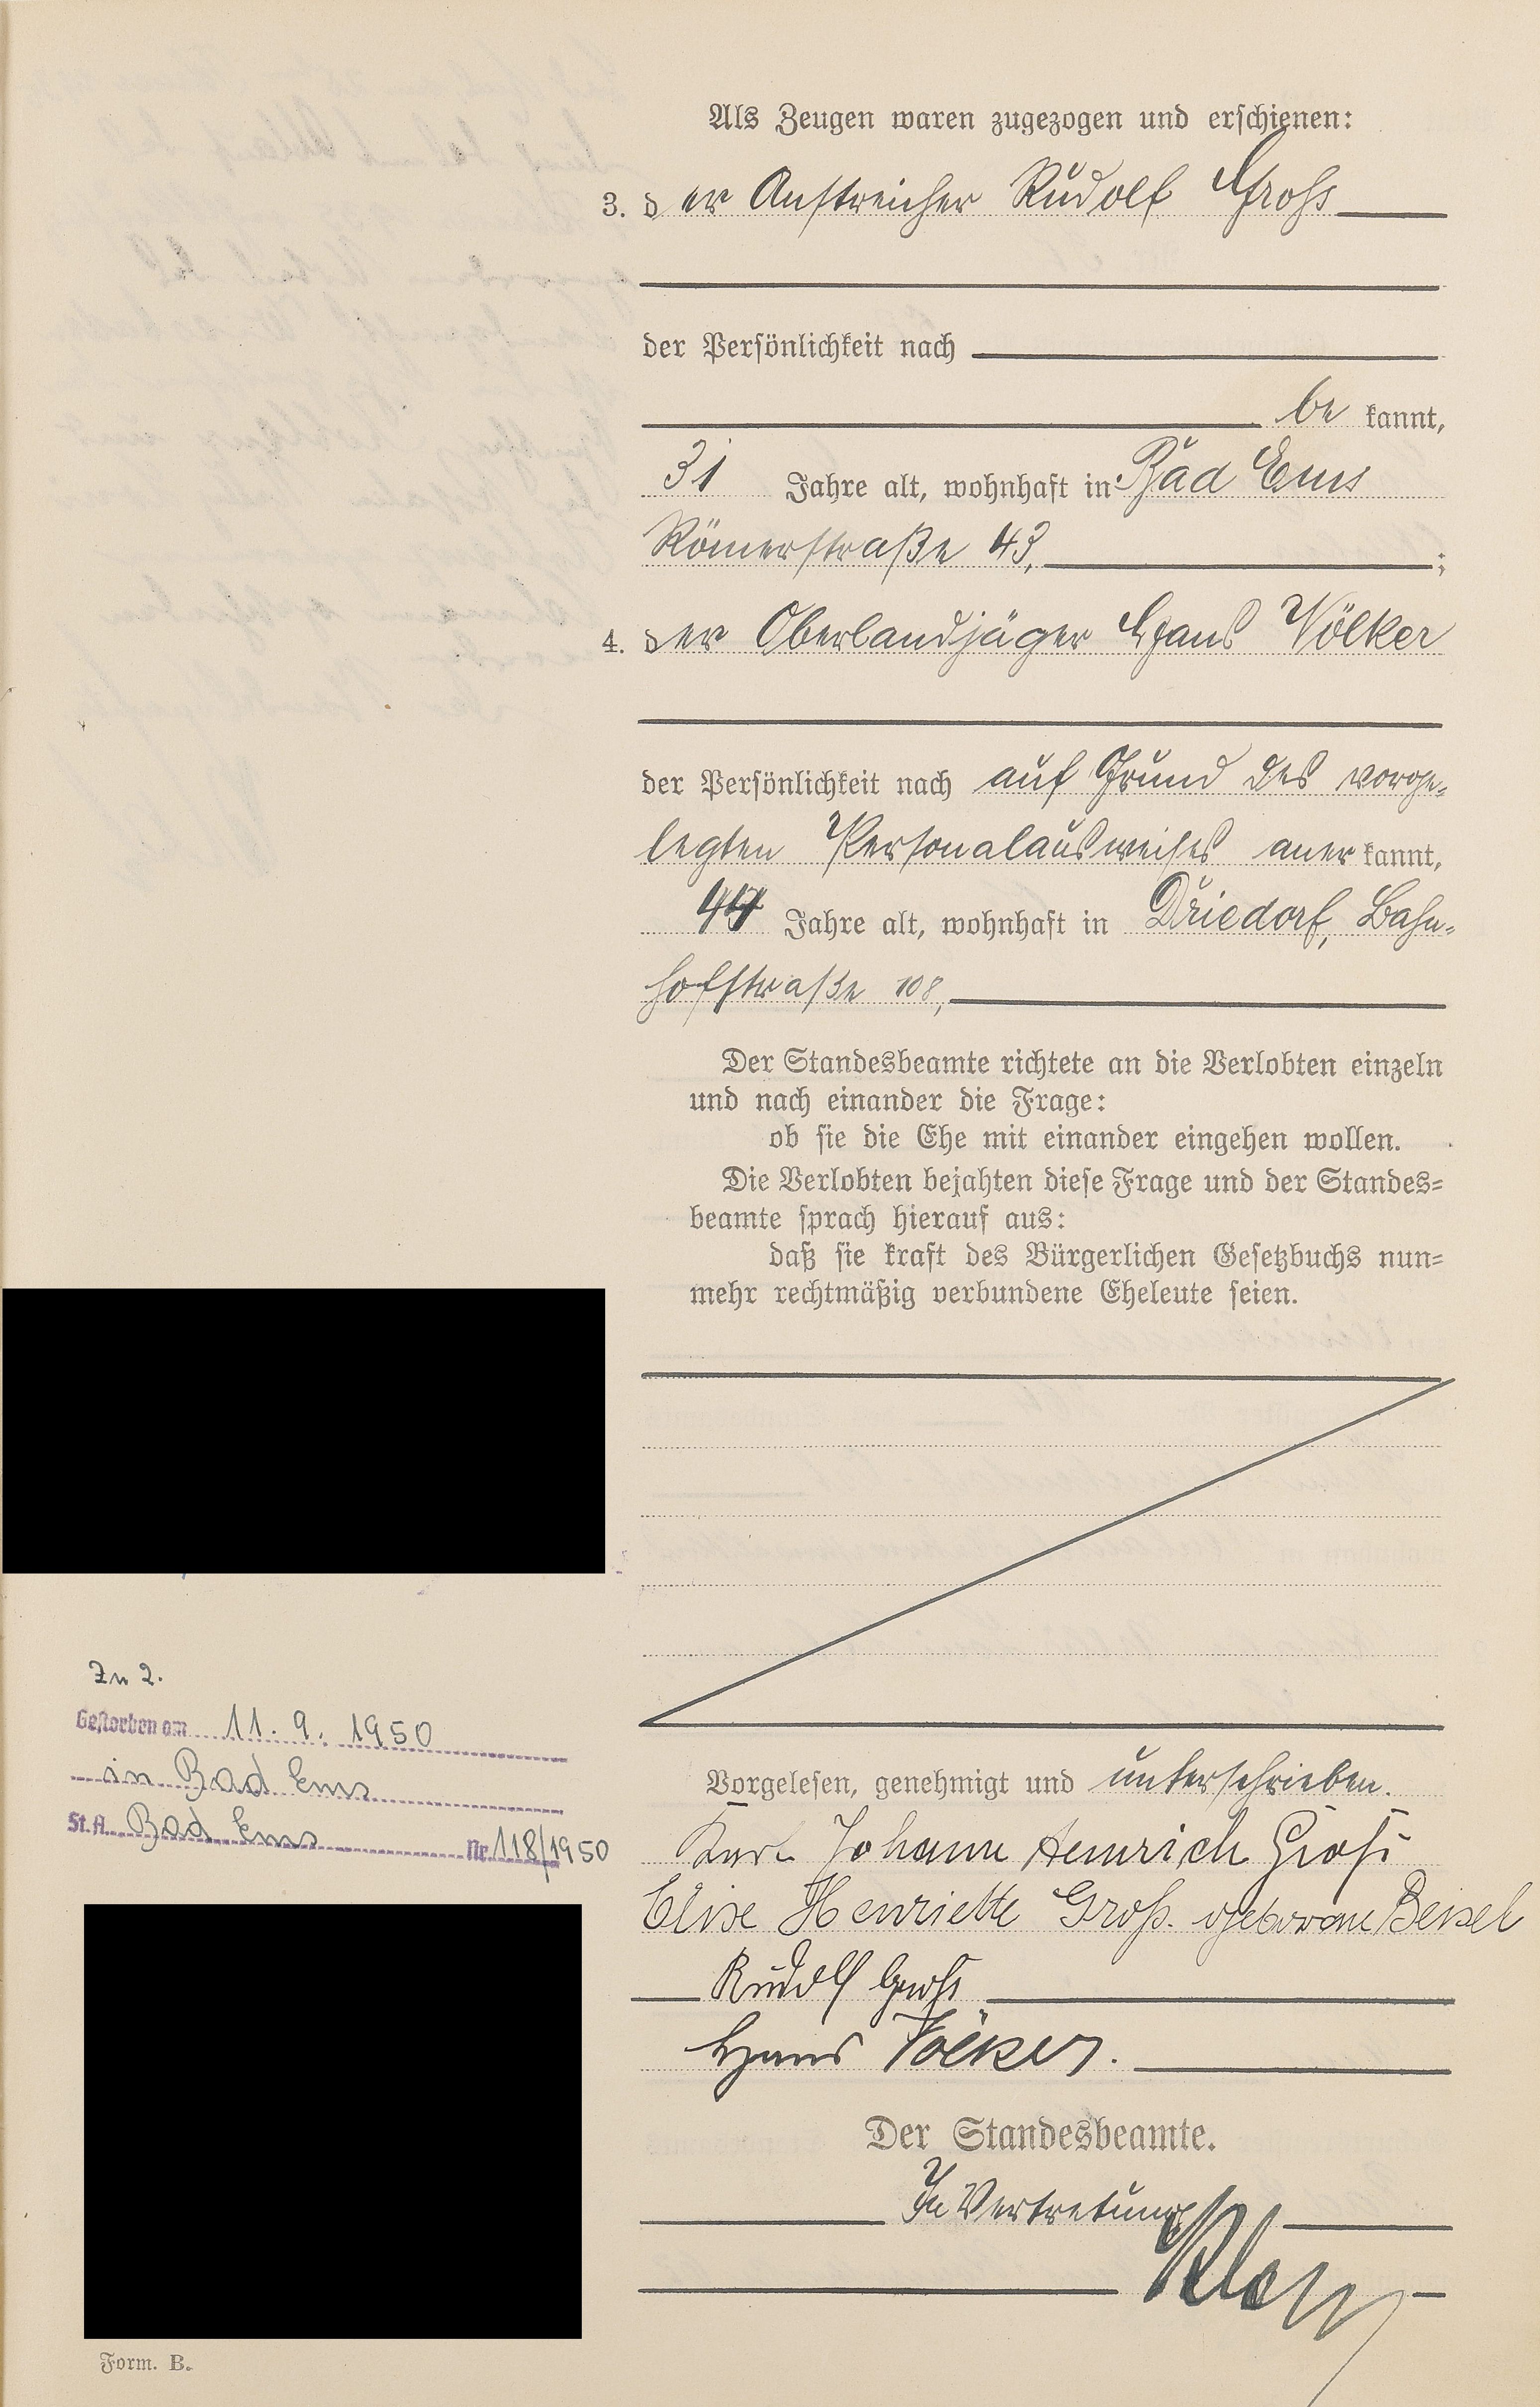 Als Zeugen waren zugezogen und erschienen:
3. der Anstreicher Rudolf Groß
der Persönlichkeit nach
be kannt,
31 Jahre alt, wohnhaft in Bad Ems
Römerstraße 43,
;
4. der Oberlandjäger Hans Völker
der Persönlichkeit nach auf Grund des vorge-
legten Personalausweises aner kannt,
Jahre alt, wohnhaft in Driedorf, Bahn-
hofstraße 108,
Der Standesbeamte richtete an die Verlobten einzeln
und nach einander die Frage:
ob sie die Ehe mit einander eingehen wollen.
Die Verlobten bejahten diese Frage und der Standes-
beamte sprach hierauf aus:
daß sie kraft des Bürgerlichen Gesetzbuchs nun-
mehr rechtmäßig verbundene Eheleute seien.
Zu 2.
Gestorben am 11. 9. 1950
in Bad Ems
St.A. Bad Ems Nr. 118/1950
Vorgelesen, genehmigt und unterschrieben.
Karl Johann Heinrich Groß
Elise Henriette Groß. geborene Beisel
Rudolf Groß
Hans Völker.
Der Standesbeamte.
In Vertretung
Form. B.